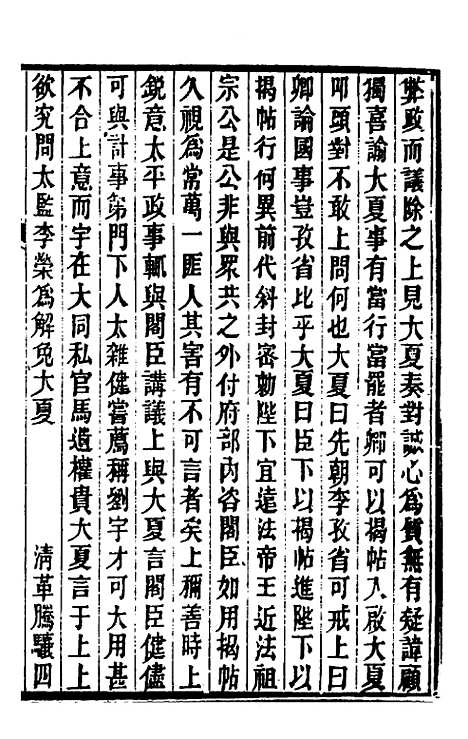 弊政而議除之上見大夏奏對誠心為質無有疑諱顧
獨喜諭大夏事有當行當罷者卿可以揭帖入啟大夏
叩頭對不敢上問何也大夏曰先朝李孜省可戒上曰
卿論國事豈孜省比乎大夏曰臣下以揭帖進陛下以
揭帖行何異前代斜封密勅陛下宜遠法帝王近法祖
宗公是公非與眾共之外付府部內咨閣臣如用揭帖
久視為常萬一匪人其害有不可言者矣上稱善時上
銳意太平政事輒與閣臣講議上與大夏言閣臣健儘
可與計事第門下人太雜健嘗薦稱劉宇才可大用甚
不合上意而宇在大同私官馬遺權貴大夏言于上上
欲究問太監李榮為解免大夏　　　清革騰驤四